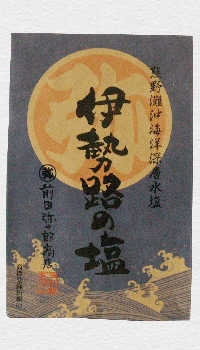 熊野灘沖海洋深層水塩
伊勢路の塩
弥
前田弥十郎商店